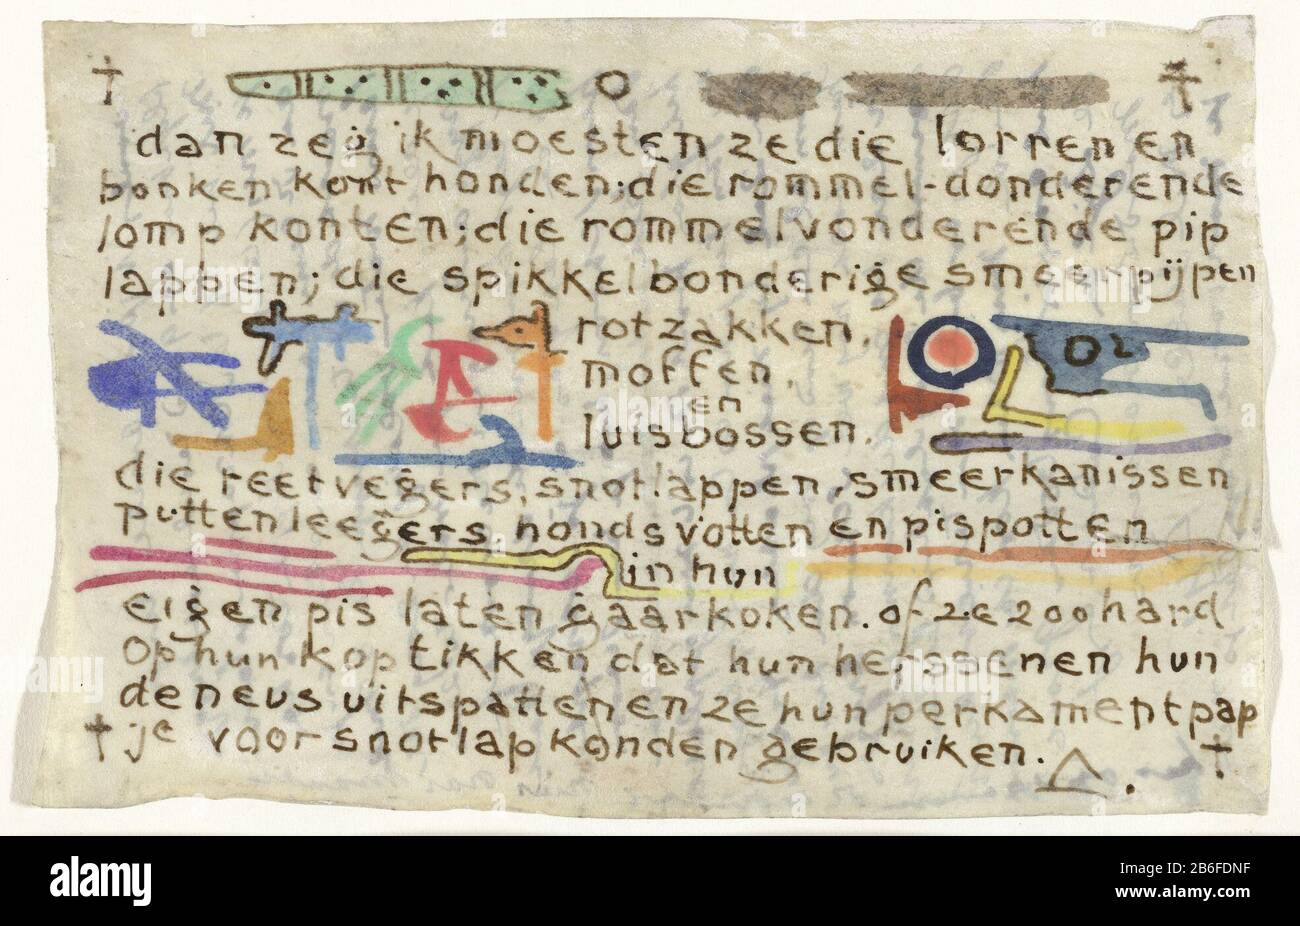 dan zeg ik moesten ze die lorren en
bonken kont honden; die rommel-donderende
lomp konten; die rommelvonderende pip
lappen; die spikkelbonderige smeerpijpen
rotzakken,
moffen,
en
luisbossen.
die reetvegers, snotlappen, smeerkanissen
puttenleegers hondsvotten en pispotten
in hun
eigen pis laten gaarkoken. of ze zoo hard
op hun kop tikken dat hun herssenen hun
de neus uitspatten en ze hun perkamentpap
je voor snotlap konden gebruiken.
alamy
Image ID: 2B6FDNF
www.alamy.com